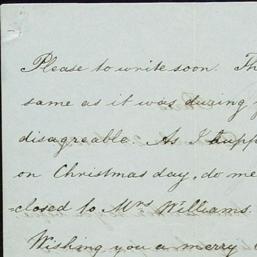 Please to write soon. Th
same as it was during
disagreeable. As I supp
on Christmas day, do me
-closed to Mrs Williams.
Wishing you a merry